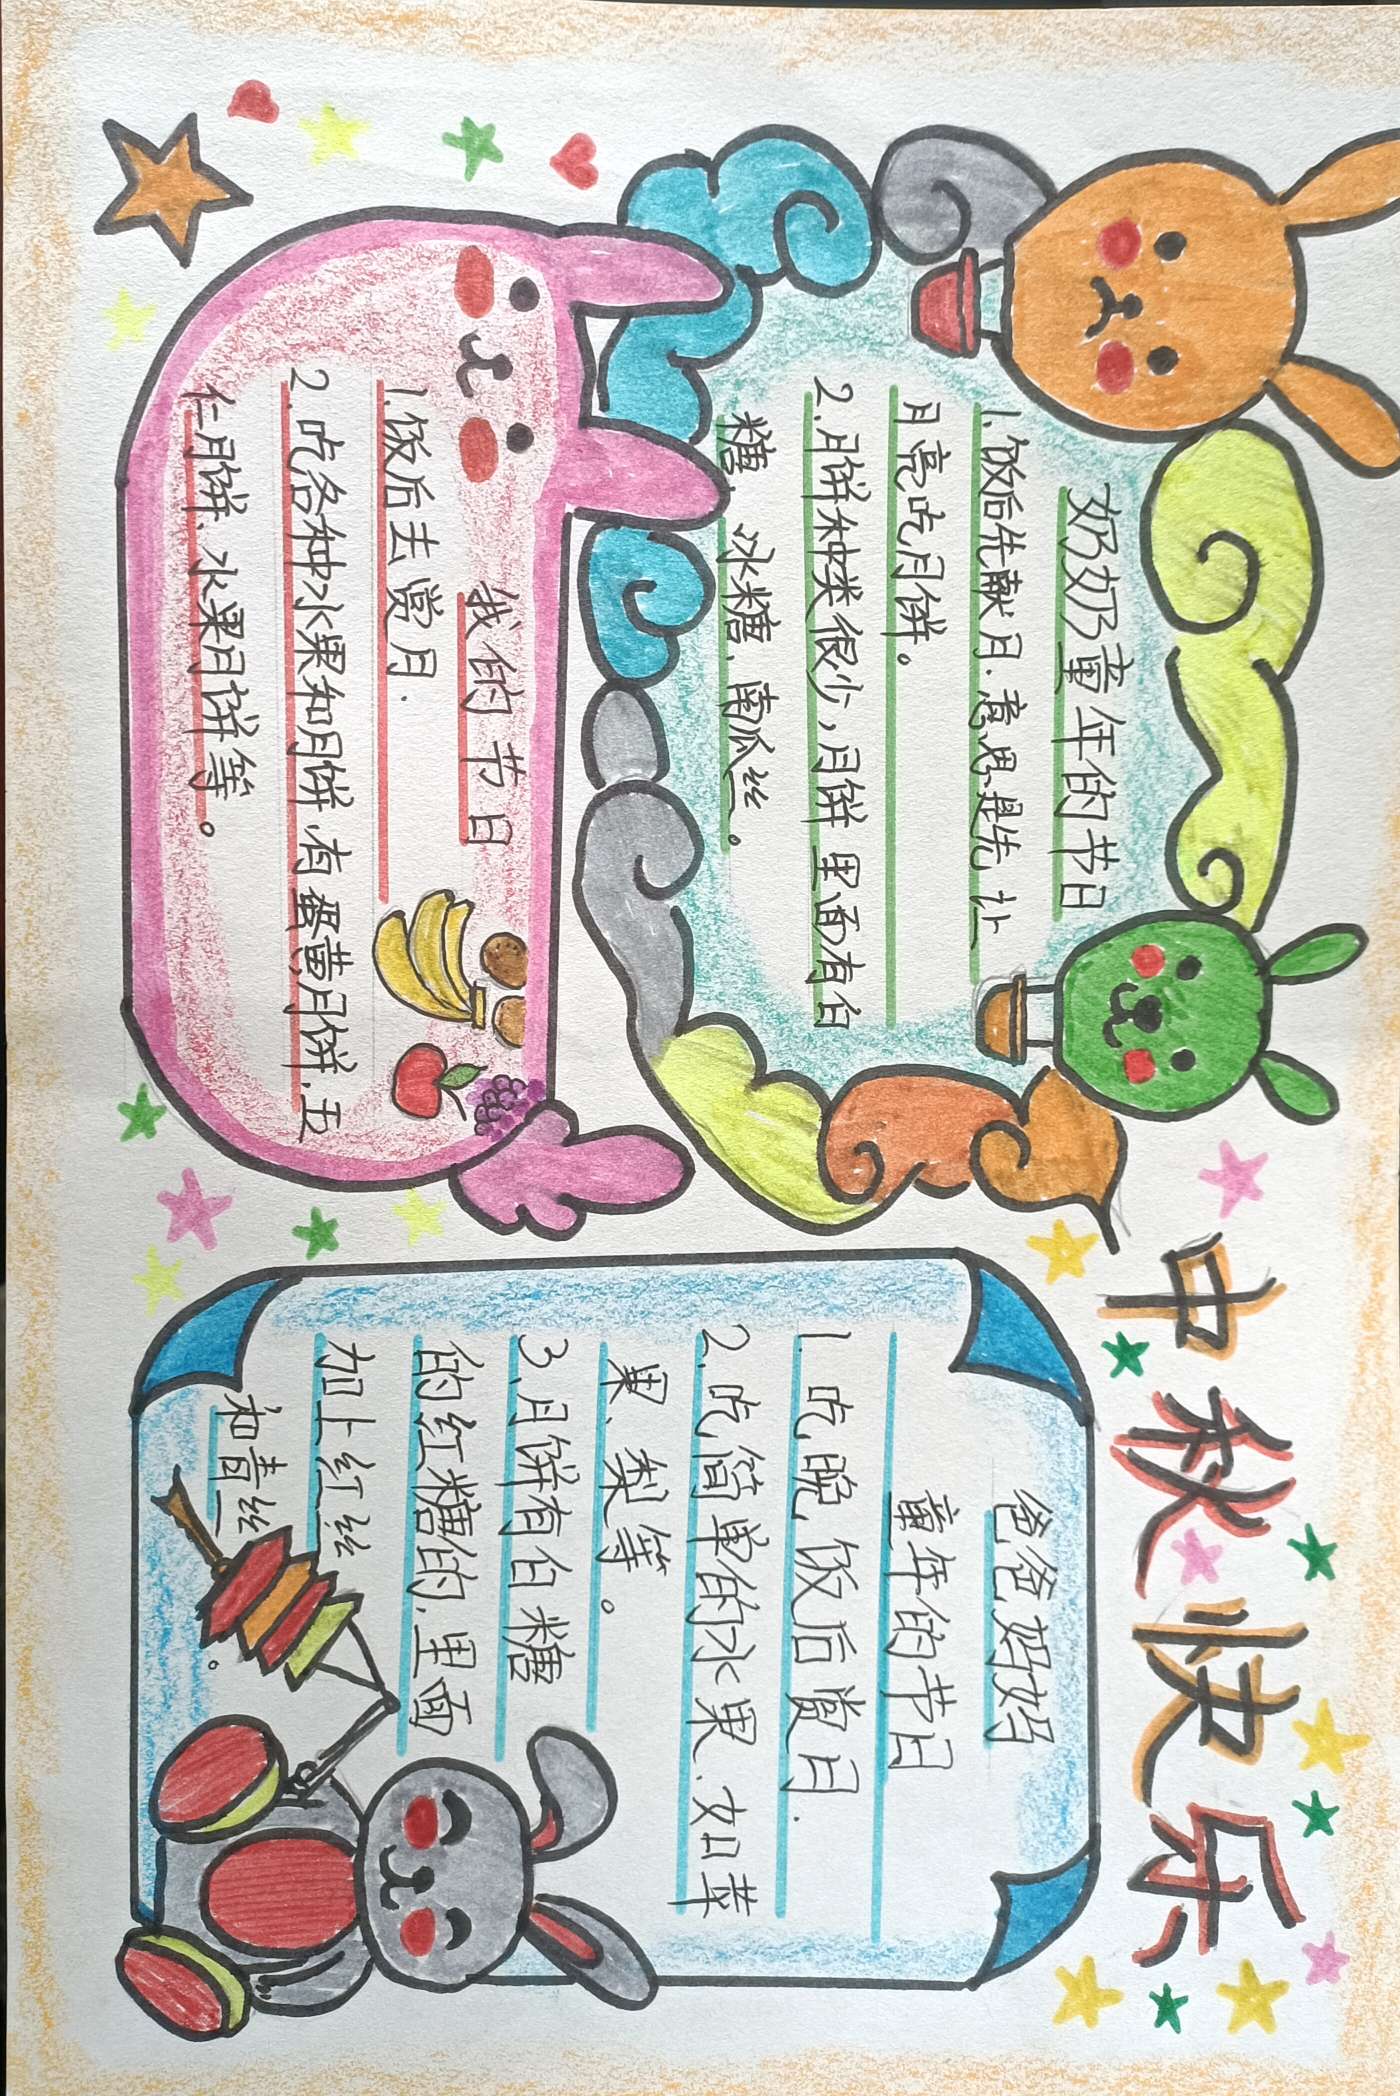 中秋快乐
奶奶童年的节日
1.饭后先献月.意思是先让
月亮吃月饼。
2.月饼种类很少,月饼里面有白
糖、冰糖、南瓜丝。
我的节日
1.饭后去赏月.
2.吃各种水果和月饼,有蛋黄月饼.五
仁月饼、水果月饼等。
爸爸妈妈
童年的节日
1.吃晚饭后赏月.
2.吃简单的水果.如苹
果、梨等。
3.月饼有白糖
的红糖的.里面
加上红丝
和青丝。